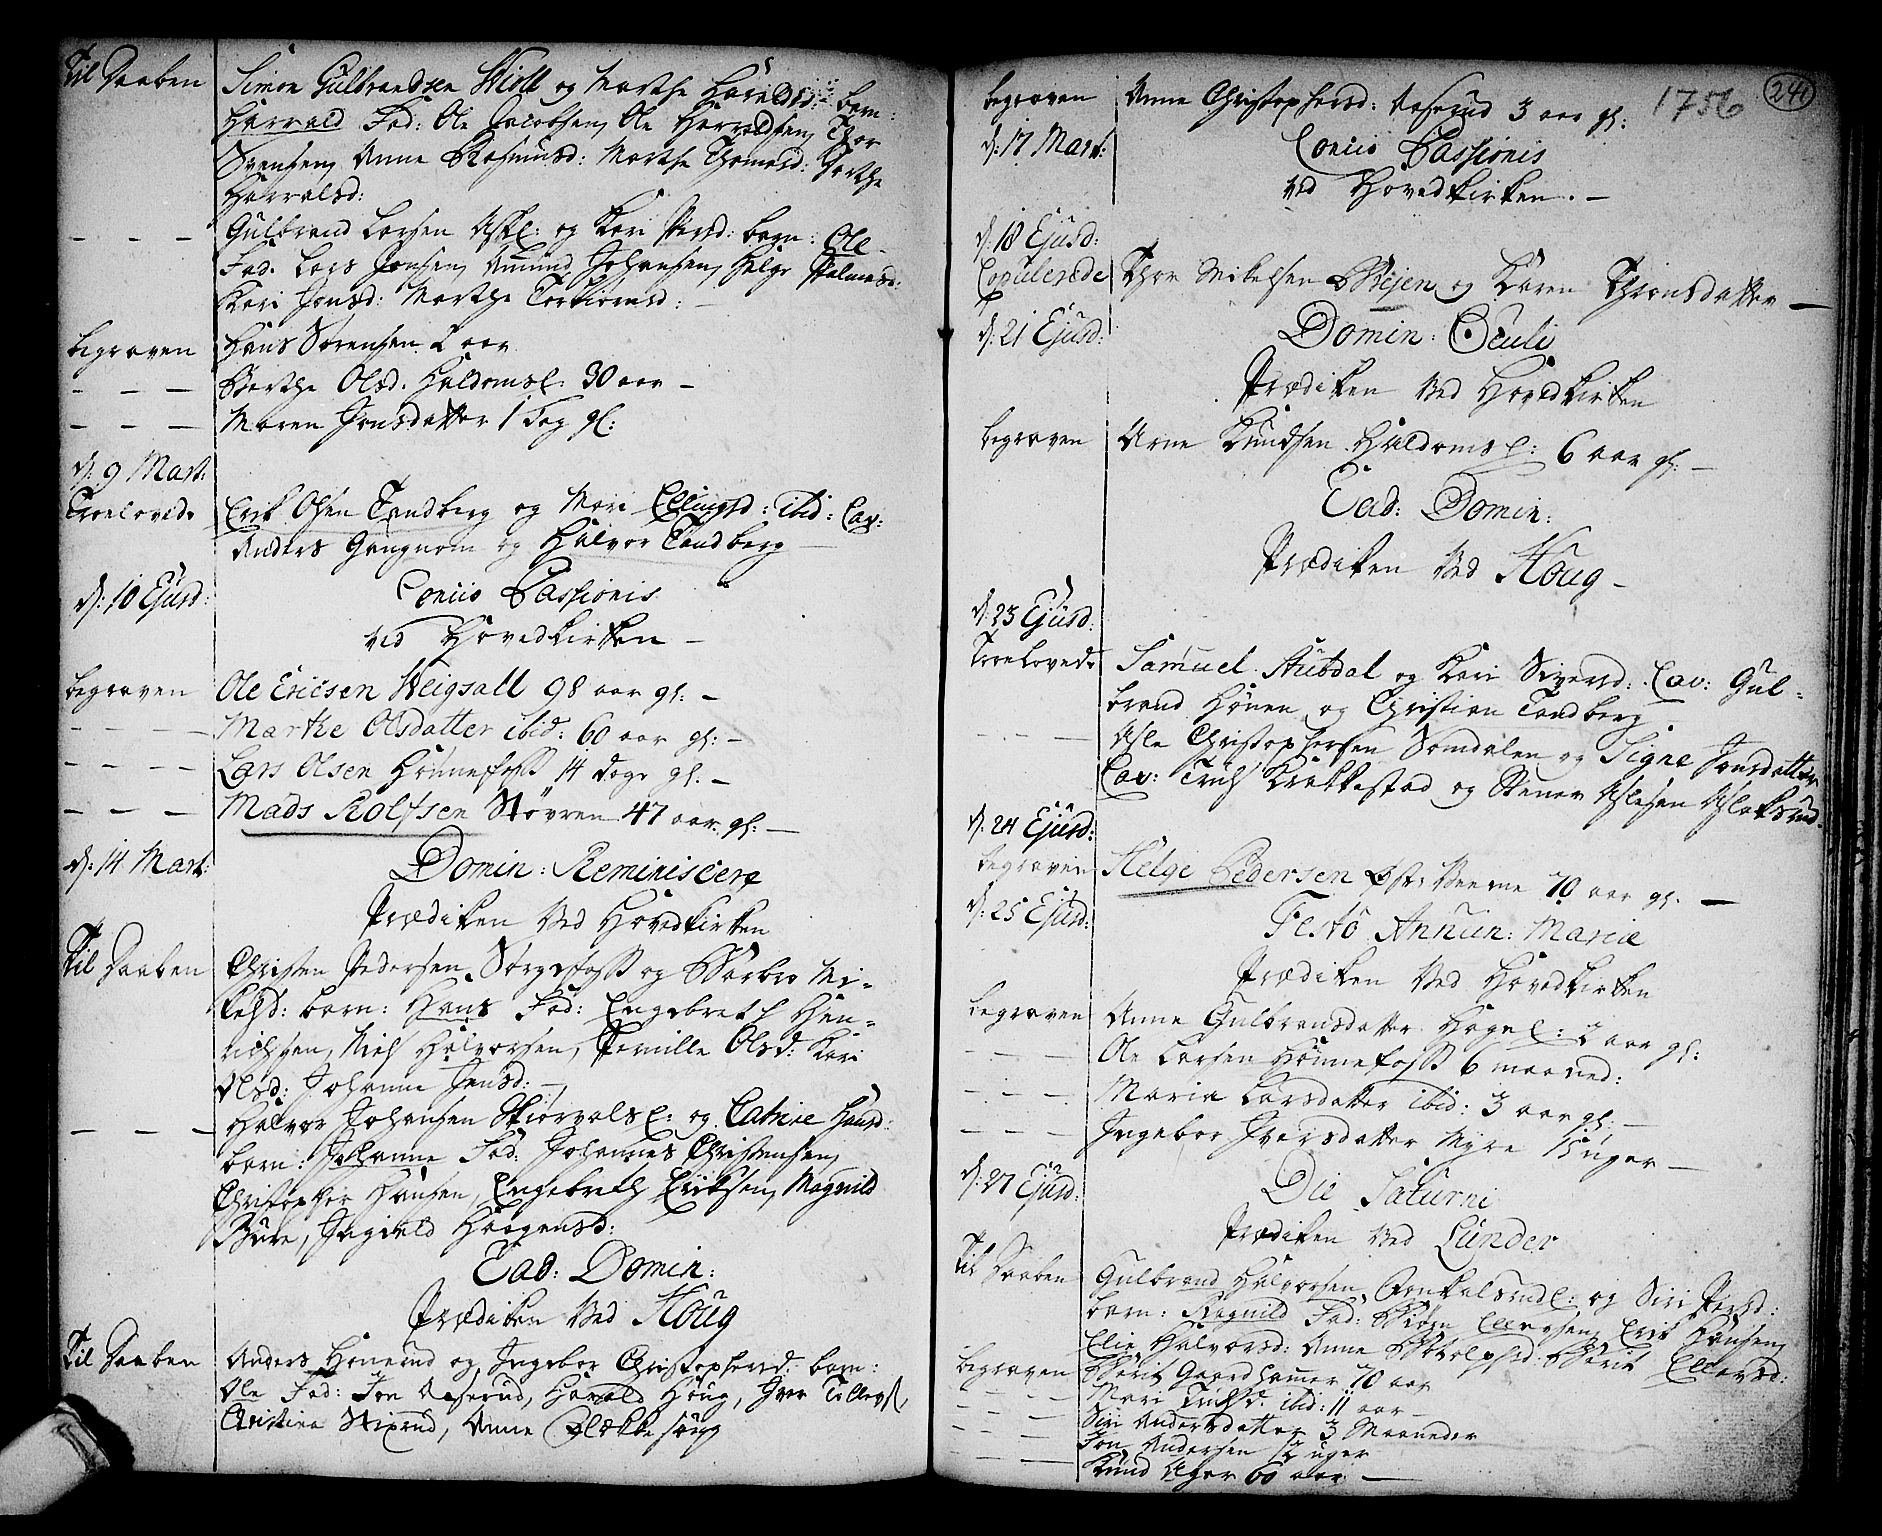 Til Daaben Simon Gulbrandsen og Marthe Haraldsd: barn:
Harrald Fad: Ole Jacobsen, Ole Harraldsen, Thor
Svensen, Anne Rasmusd: Marthe Thomesd: Marthe
Harralsd:
— — — Gulbrand Larsen og Kari Persd: barn: Ole
Fad. Lars Jonsen, Amund Johansen, Helge
Kari Jonsd: Marthe
begraven Hans Sørensen 2 aar
— — — Berthe Olsd. Haldomsl. 30 aar —
— — — Maren Jonsdatter 1 Dag gl:
d: 9 Mart:
Troelovede Erik Olsen Tandberg og Mari Ellingsd: ibid: Cav:
Anders Gangnom og Halvor Tandberg —
d: 10 Ejusd: Concio Passionis
ved Hovedkirken —
begraven Ole Ericsen Veigsall 98 aar gl: —
— — — Marthe Olsdatter ibid: 60 aar gl: —
— — — Lars Olsen Hønnefoss 14 dage gl. —
— — — Mads Rolfsen Støvren 47 aar gl: —
d: 14 Mart: Domin: Reminiscere
Prædiken Ved Hovedkirken
Til Daaben Christen Pedersen Sørgefoss og Barbro Mi-
kelsd: barn: Hans Fad: Engebreth Hen-
richsen, Niels Halvorsen, Pernille Olsd: Kari
Olsd: Johanne Jensd: —
— — — Halvor Johansen og Catrine Hansd:
barn: Johanne Fad: Johannes Christensen,
Christopher Hansen, Engebreth Eriksen, Magnild
Bure, Ingield Haagensd:
Ead: Domin:
Prædiken Ved Houg
Til Daaben Anders Hønerud og Ingebor Christophersd: barn:
Ole Fad: Jon Aaserud, Harald Houg, Iver
Christina Vixrud, Anne
241
1756
begraven Anne Christophersd: Aaserud 3 aar gl:
d: 17 Mart: Concio Passionis
ved Hovedkirken. —
d: 18 Ejusd:
Copulerede Thor Mikelsen og Karen —
d: 21 Ejusd: Domin: Oculi
Prædiken Ved Hovedkirken
begraven Arne Knudsen Haldomsl: 6 aar gl: —
Ead: Domin:
Prædiken Ved Houg —
d: 23 Ejusd:
Troelovede Samuel Stubdal og Kari Siversd: Cav: Gul-
brand Hønen og Christian Tandberg.
— — — Asle Christophersen Somdalen og Signe Jonsdatter
Cav: Truls Krakkestad og Stener Aslesen Aslaksrud
d: 24 Ejusd:
begraven Helge Pedersen 70 aar gl. —
d: 25 Ejusd: Festo Annun: Mariæ
Prædiken Ved Hovedkirken
begraven Anne Gulbransdatter 2 aar gl:
— — — Ole Larsen Hønnefoss 6 maaned:
— — — Maria Larsdatter ibid: 3 aar gl: —
— — — Ingebor Iversdatter Myre 15 uger —
d: 27 Ejusd: Die Saturni
Prædiken Ved Lunder
Til Daaben Gulbrand Halvorsen og Siri Persd:
barn: Ragnild Fad: Biørn Ellevsen, Erik Hansen,
Elie Halvorsd: Anne Berit Ellevsd:
begraven Berit Gaardhammer 70 aar
— — — Mari Trulsd. ibid: 11 aar
— — — Siri Andersdatter 3 Maaneder
— — — Jon Andersen 12 uger
— — — Knud Ager 60 aar —